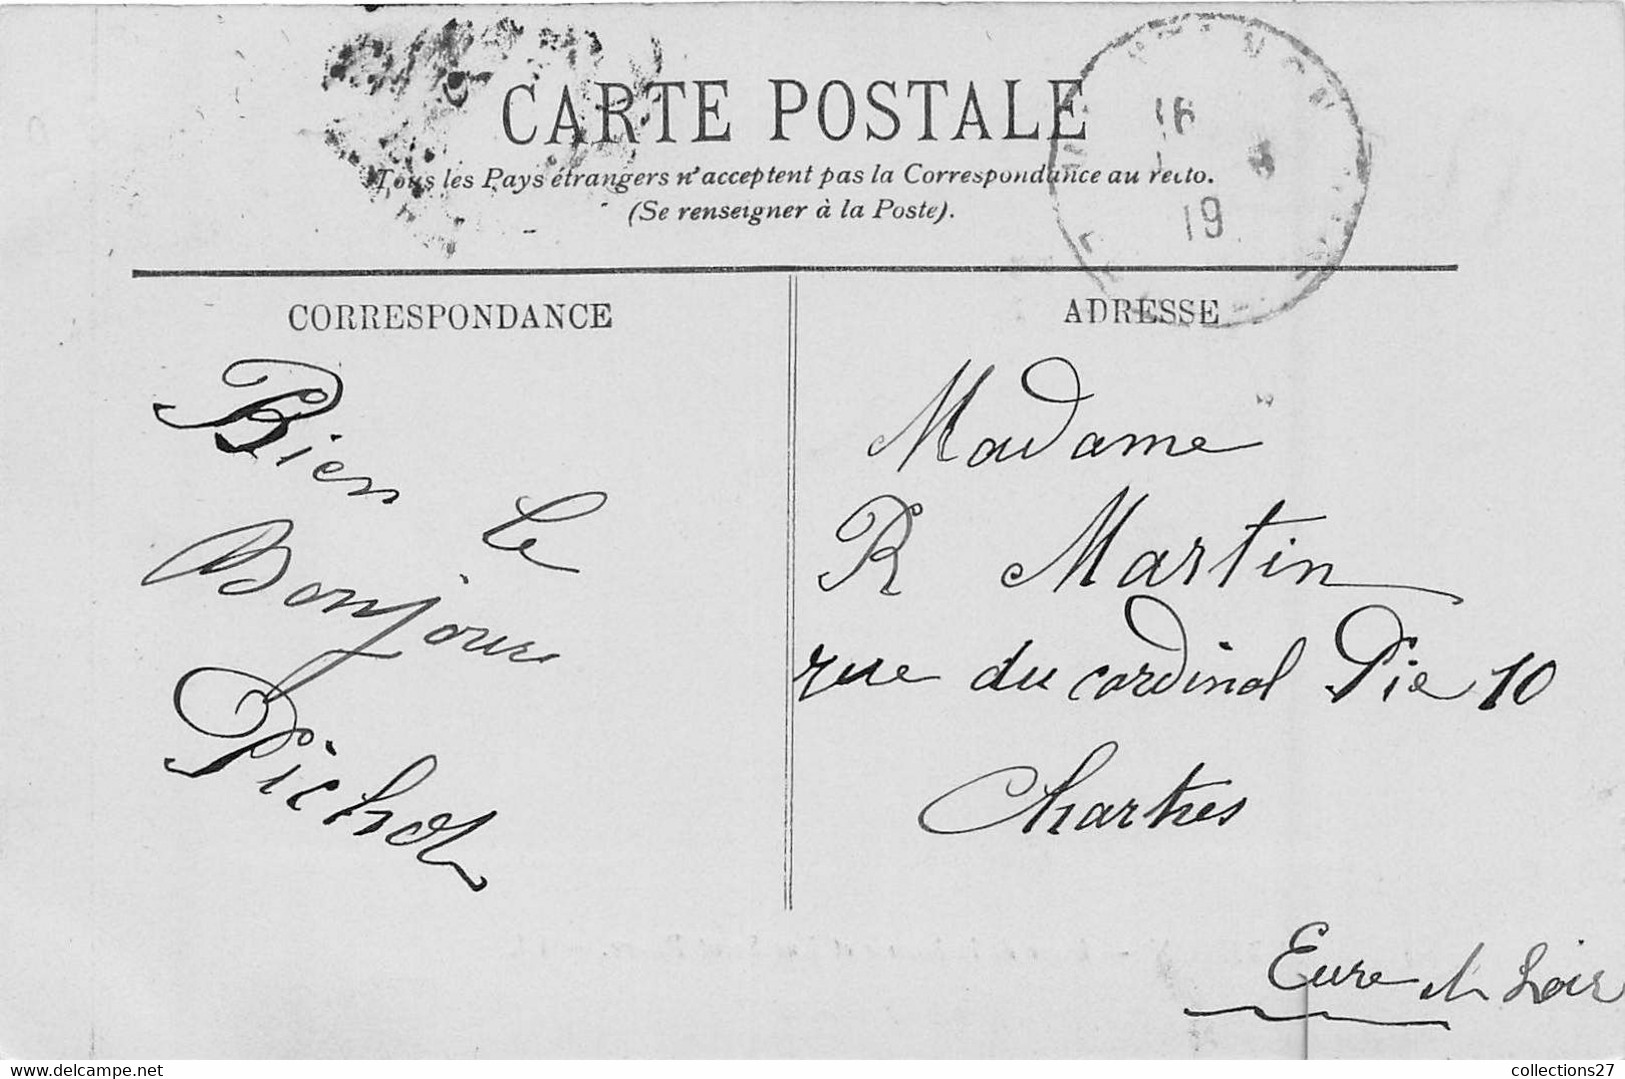 CARTE POSTALE
Tous les Pays étrangers n'acceptent pas la Correspondance au recto.
(Se renseigner à la Poste).
16
19
CORRESPONDANCE
Bien le
Bonjour
Pichot
ADRESSE
Madame
R Martin
rue du cardinal Pie 10
Chartres
Eure et Loir
collections27